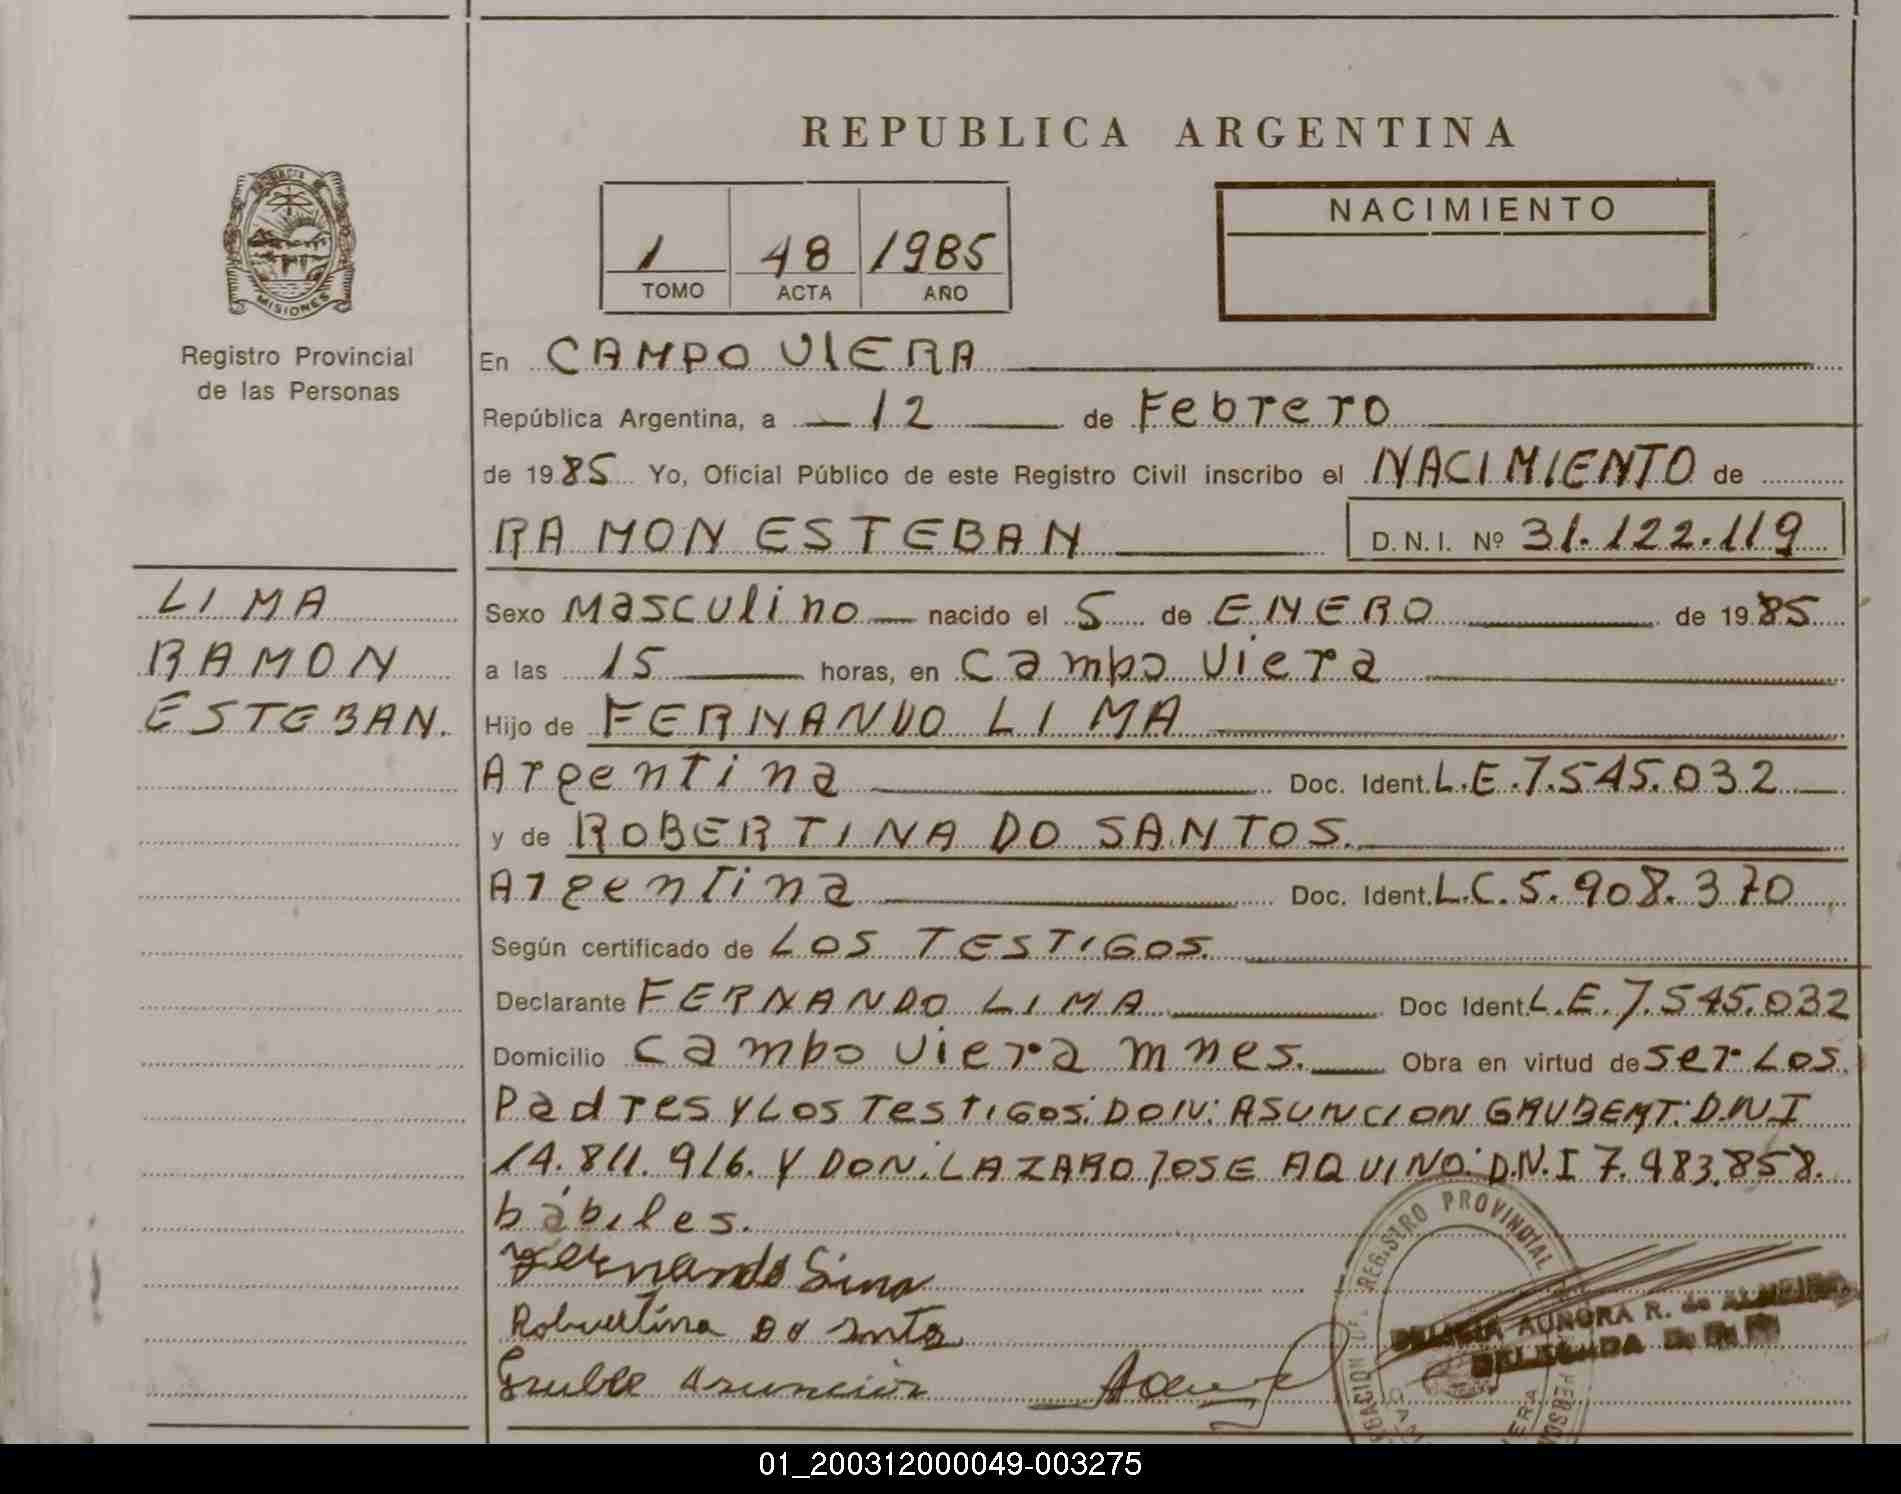 REPUBLICA ARGENTINA
NACIMIENTO
1 48 1985
TOMO ACTA AÑO
MISIONES
Registro Provincial
de las Personas
En CAMPO VIERA
República Argentina, a 12 de Febrero
de 1985 Yo, Oficial Público de este Registro Civil inscribo el NACIMIENTO de
RAMON ESTEBAN D.N.I. Nº 31.122.119
LIMA
RAMON
ESTEBAN.
Sexo Masculino nacido el 5 de ENERO de 1985
a las 15 horas, en Campo Viera
Hijo de FERNANDO LIMA
Argentina Doc. Ident. L.E.7.545.032
y de ROBERTINA DO SANTOS.
Argentina Doc. Ident. L.C.5.908.370
Según certificado de LOS TESTIGOS.
Declarante FERNANDO LIMA Doc Ident. L.E.7.545.032
Domicilio Campo Viera mnes. Obra en virtud de ser Los
Padres y Los Testigos: DON: ASUNCION D.N.I
14.811.916. Y DON: LAZARO JOSE AQUINO: D.N.I 7.483.858.
hábiles.
Fernando Lima
Asuncion
REGISTRO PROVINCIAL
AURORA R. de ALMEIDA
DELEGADA
01_200312000049-003275